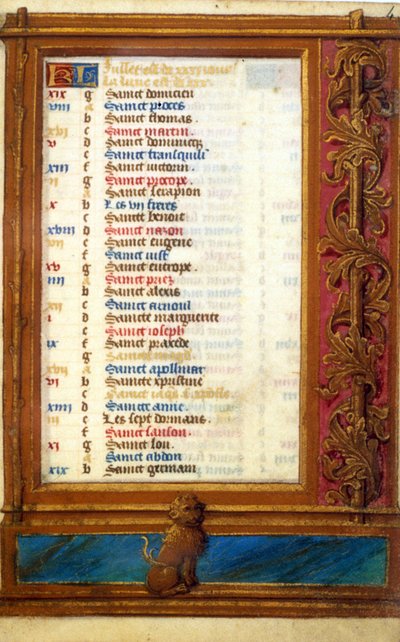 KL Juillet est de xxxi iours
La lune est de xxx
xix g Sainct domicien
viii a Sainct proces
b Sainct thomas.
xvi c Sainct martin.
v d Sainct dominicq
e Sainct transquili
xiii f Sainct victorin.
ii g Sainct procope.
a Sainct serapion
x b Les vii freres
c Sainct benoit
xviii d Sainct nazon
vii e Sainct eugene
f Sainct
xv g Sainct eutrope.
iiii a Sainct
b Sainct alexis
xii c Sainct arnoul
i d Saincte marguerite
e Sainct ioseph
ix f Sainct praxede
g
xvii a Sainct apollinar
vi b Saincte xpistine
c Sainct
xiiii d Saincte anne.
iii e Les sept dormans.
f Sainct sanson.
xi g Sainct lou.
a Sainct abdon
xix b Sainct germain